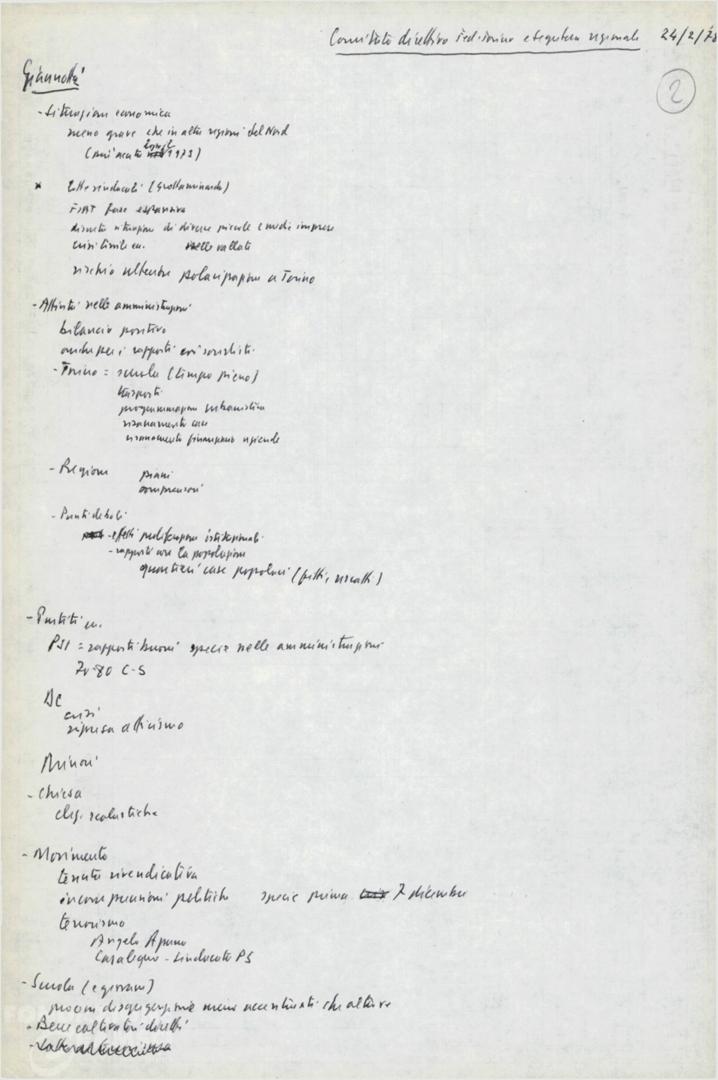 Comitato direttivo Fed. Torino e segreteria regionale 24/2/78
2
Giannotti
- Situazione economica
meno grave che in altre regioni del Nord
(più acuta 1973)
x lotte sindacali (Grottaminarda)
FIAT fase espansiva
discreta situazione di diverse piccole e medie imprese
crisi tessile ecc. nelle vallate
rischio ulteriore polarizzazione a Torino
- Attività nelle amministrazioni
bilancio positivo
anche per i rapporti coi socialisti
- Torino = scuola (tempo pieno)
trasporti
programmazione urbanistica
risanamento case
risanamento finanziario aziende
- Regione piani
comprensori
- Punti deboli
- effetti proliferazione istituzionali
- rapporti con la popolazione
quartieri case popolari (fitti, riscatti)
- Partiti ecc.
PSI = rapporti buoni specie nelle amministrazioni
70-80 C-S
DC
crisi
ripresa attivismo
Minori
- Chiesa
elez. scolastiche
- Movimento
tenuta rivendicativa
incomprensioni politiche specie prima 7 dicembre
terrorismo
Angelo Azzurro
Casalegno - sindacato PS
- Scuola (e giovani)
processi disgregazione meno accentuati che altrove
- Bene coltivatori diretti